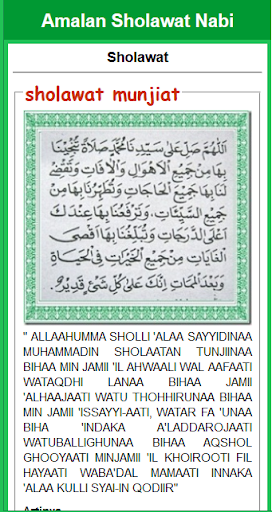 Amalan Sholawat Nabi
Sholawat
sholawat munjiat
اَللّٰهُمَّ صَلِّ عَلٰى سَيِّدِنَا مُحَمَّدٍ صَلَاةً تُنْجِيْنَا
بِهَا مِنْ جَمِيْعِ الْاَهْوَالِ وَالْاٰفَاتِ وَتَقْضِىْ
لَنَا بِهَا جَمِيْعَ الْحَاجَاتِ وَتُطَهِّرُنَا بِهَا مِنْ
جَمِيْعِ السَّيِّئَاتِ، وَتَرْفَعُنَا بِهَا عِنْدَكَ
اَعْلَى الدَّرَجَاتِ وَتُبَلِّغُنَا بِهَا اَقْصَى
الْغَايَاتِ مِنْ جَمِيْعِ الْخَيْرَاتِ فِى الْحَيَاةِ
وَبَعْدَ الْمَمَاتِ اِنَّكَ عَلٰى كُلِّ شَىْءٍ قَدِيْرٌ.
" ALLAAHUMMA SHOLLI 'ALAA SAYYIDINAA
MUHAMMADIN SHOLAATAN TUNJIINAA
BIHAA MIN JAMII 'IL AHWAALI WAL AAFAATI
WATAQDHI LANAA BIHAA JAMII
'ALHAAJAATI WATU THOHHIRUNAA BIHAA
MIN JAMII 'ISSAYYI-AATI, WATAR FA 'UNAA
BIHA 'INDAKA A'LADDAROJAATI
WATUBALLIGHUNAA BIHAA AQSHOL
GHOOYAATI MINJAMII 'IL KHOIROOTI FIL
HAYAATI WABA'DAL MAMAATI INNAKA
'ALAA KULLI SYAI-IN QODIIR"